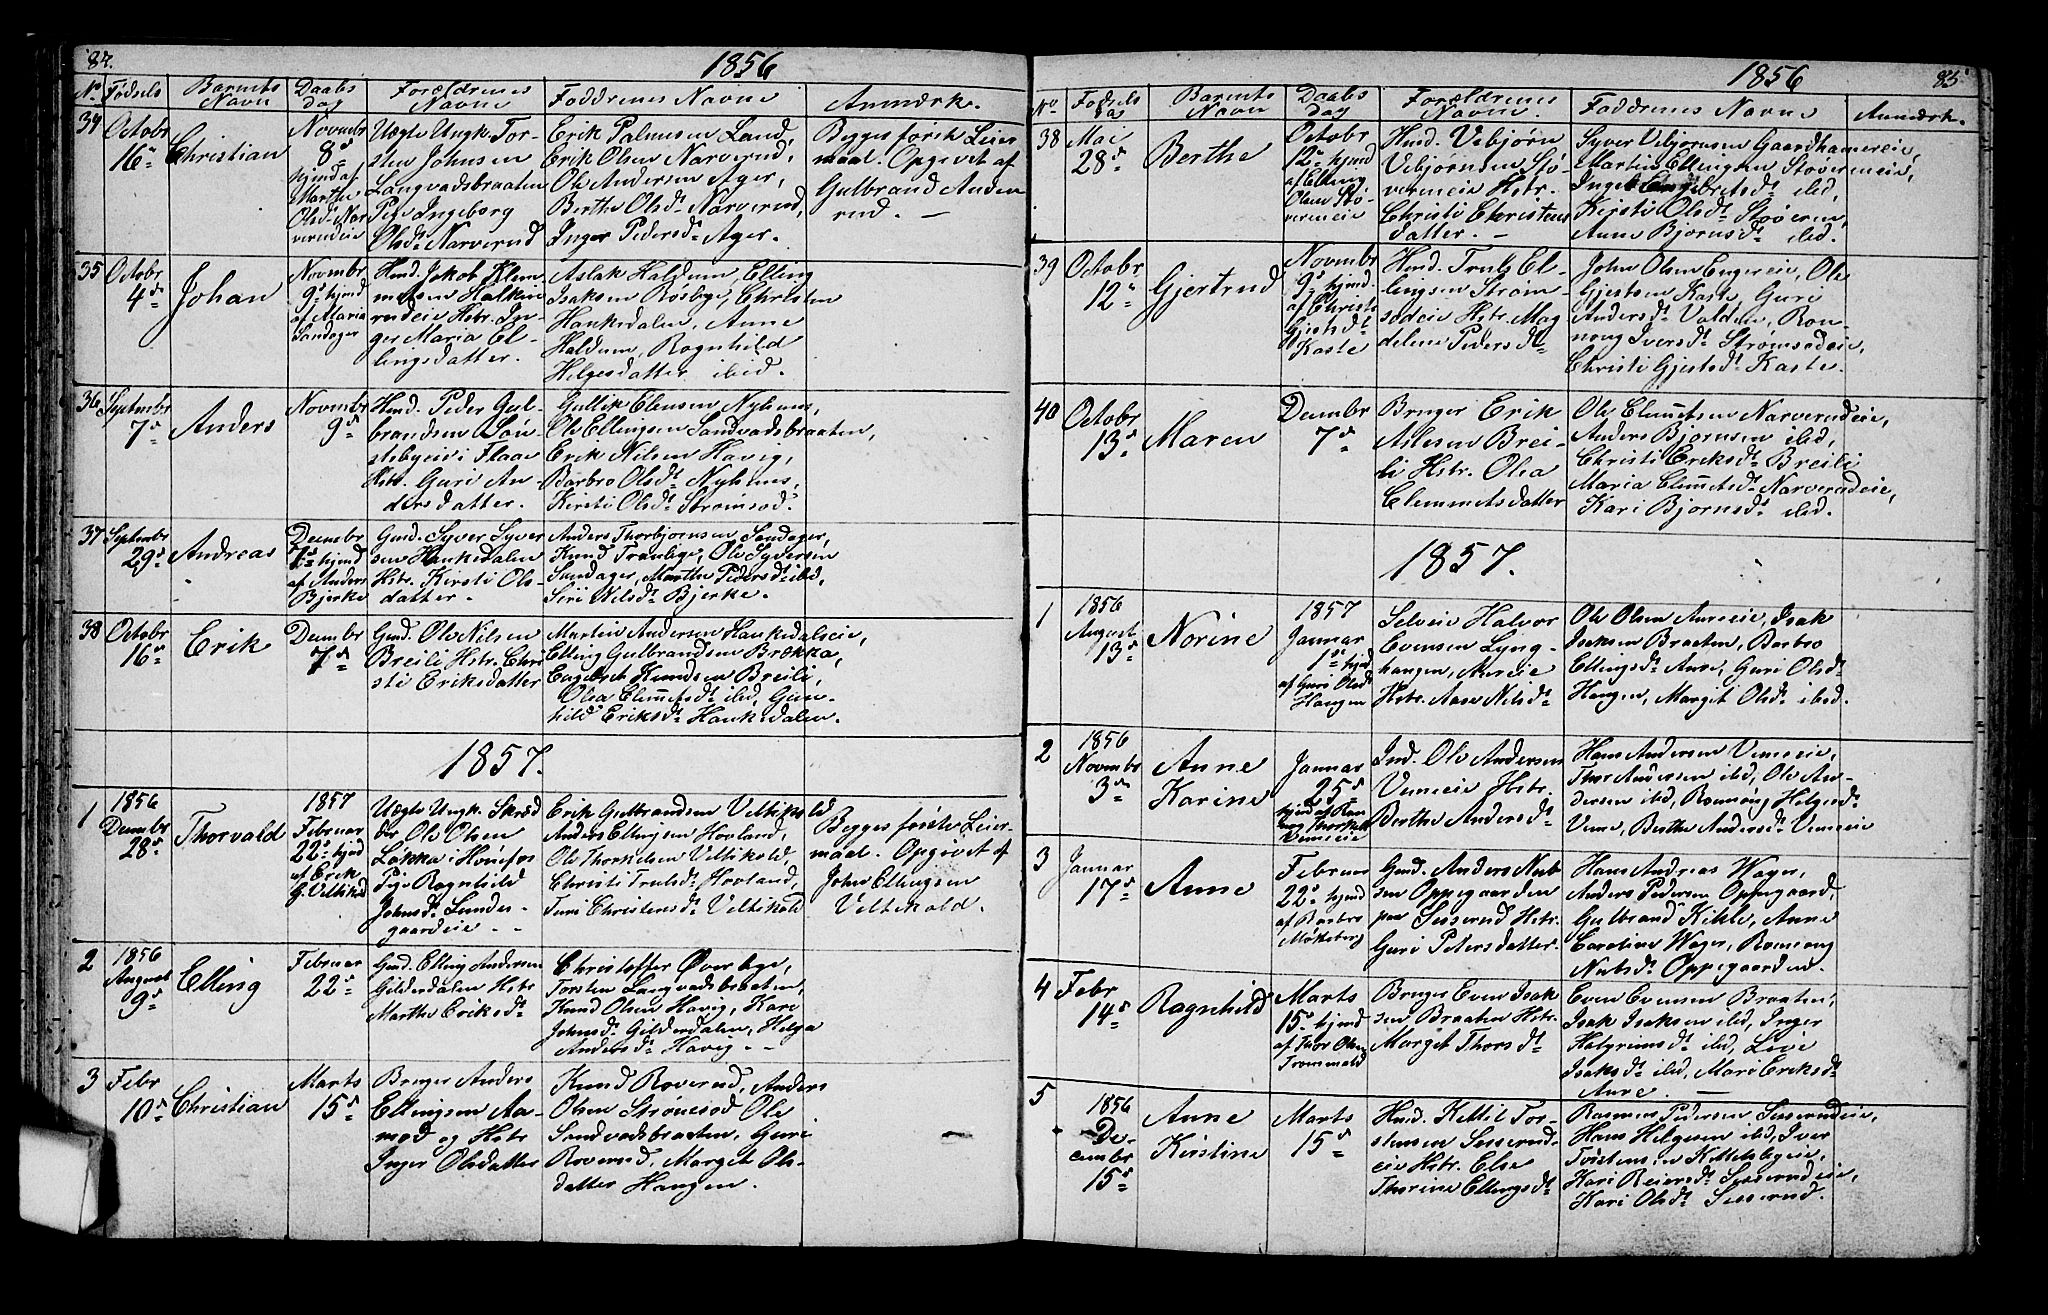 84.
1856
No Fødsels Barnets Navn Daabs dag Forældrenes Navne Faddrenes Navne Anmærk.
34 Octobr 16de Christian
Novembr 8de hjemd af Marthe Olsdr Narverudeie
Uægte Ungk. Tor-
sten Johnsen
Langvadsbraaten
Pige Ingeborg
Olsdr Narverud
Erik Palmesen Land,
Erik Olsen Narverud,
Ole Andersen Ager,
Berthe Olsdr Narverud,
Inger Pedersdr Ager.
Begges første Leier
maal. Opgivet af
Gulbrand Anden
rud. —
35 Octobr 4de Johan
Novembr 9de hjemd af Maria Sandager
Hmd. Jakob Klem
metsen Halkin
rudeie Hstr. In-
ger Maria El-
lingsdatter.
Aslak Haldum, Elling
Isaksen Rosbye, Christen
Hauksdalen, Anne
Haldum, Ragnhild
Helgesdatter ibid.
36 Septembr 7de Anders
Novembr 9de
Hmd. Peder Gul-
brandsen Søn-
stebyeie i Flaae
Hstr. Guri An-
dersdatter.
Gullik Clausen Nyhuus,
Ole Ellingsen Sandvadsbraaten,
Erik Nilsen Havig,
Barbro Olsdr Nyhuus,
Kirsti Olsdr Strømsod.
37 Septembr 29de Andreas
Decembr 7de hjemd af Anders Bjerke
Gmd. Syver Syver
sen Hauksdalen
Hstr. Kirsti Ols-
datter.
Anders Thorbjørnsen Sandager,
Knud Tranbye, Ole Syversen
Sandager, Marthe Pedersdr ibid,
Siri Nilsdr Bjerke.
38 Octobr 16de Erik
Decembr 7de
Gmd. Ole Nilsen
Breili Hstr. Chri
sti Eriksdatter
Martin Andersen Hauksdalseie,
Elling Gulbrandsen Brække,
Engebret Knudsen Breili,
Olea Clemetsdr ibid, Gun-
hild Eriksdr Hauksdalen.
1857.
1 1856 Decembr 28de Thorvald
1857 Februar 22de hjemd af Erik G. Veltikold
Uægte Ungk. Skræd
der Ole Olsen
Løkka i Hønefos
Pige Ragnhild
Johnsdr Lunder-
gaardeie - -
Erik Gulbrandsen Veltikold
Anders Ellingsen Hovland,
Ole Thorkelsen Veltikold,
Christi Trulsdr Hovland,
Turi Christensdr Veltikold
Begges første Leier-
maal. Opgivet af
John Ellingsen
Veltikold.
2 1856 August 9de Elling
Februar 22de
Gmd. Elling Andersen
Gilderdalen Hstr
Marthe Eriksdr
Christoffer Øverbye,
Torsten Langvadsbraaten,
Knud Olsen Havig, Kari
Johnsdr Gilderdalen, Helga
Andersdr Havig - -
3 Febr 10de Christian
Marts 15de
Bruger Anders
Ellingsen Aa-
mod og Hstr
Inger Olsdatter
Knud Roverud, Anders
Olsen Strømsod Ole
Sandvadsbraaten, Guri
Roverud, Marget Ols-
datter Haugen.
1856 85
No Fødsels Dag Barnets Navn Daabs dag Forældrenes Navne. Faddrenes Navne Anmærk.
38 Mai 28de Berthe
Octobr 12te hjemd af Elling Olsen Støverneie
Hmd. Vebjørn
Vebjørnsen Stø-
verneie Hstr.
Christi Christens
datter. —
Syver Vebjørnsen Gaardhamereie,
Martin Ellingsen Støverneie,
Inger Engebretsdr ibid.
Kirsti Olsdr Støveren,
Anne Bjørnsdr ibid.
39 Octobr 12te Gjertrud
Novembr 9de hjemd af Christi Gjestsdr Kaste
Hmd. Truls El-
lingsen Strøm-
sodeie Hstr. Mag
delene Pedersdr
John Olsen Engereie, Ole
Gjestsen Kaste, Guri
Andersdr Valden, Ron-
noug Iversdr Strømsodeie,
Christi Gjestsdr Kaste.
40 Octobr 13de Maren
Decembr 7de
Bruger Erik
Aslesen Brei-
li Hstr. Olea
Clemmetsdatter
Ole Clemetsen Narverudeie,
Anders Bjørnsen ibid,
Christi Eriksdr Breili
Maria Clemetsdr Narverudeie,
Kari Bjørnsdr ibid.
1857.
1 1856 August 13de Norine
1857 Januar 1ste hjemd af Guri Olsdr Haugen
Selveie Halvor
Evensen Lyng-
haugen, Aureie
Hstr. Aase Nilsdr
Ole Olsen Aureeie, Isak
Isaksen Braaten, Barbro
Ellingsdr Aure, Guri Olsdr
Haugen, Margit Olsdr ibid.
2 1856 Novembr 3de Anne Karine
Januar 25de hjemd af Ronnoug Thorkels Vemeeie
Ind. Ole Andersen
Vemeeie Hstr.
Berthe Andersdr
Hans Andersen Vemeeie,
Thor Andersen ibid, Ole An-
dersen ibid, Ronnoug Helgesdr
Veme, Berthe Andersdr Vemeeie
3 Januar 17de Anne
Februar 22de hjemd af Barbro Mokeberg
Gmd. Anders Nub-
sen Oppegaarden
paa Sesserud Hstr.
Guri Petersdatter.
Hans Andreas Wager,
Anders Pedersen Oppegaard,
Gulbrand Kihle, Anne
Caroline Wager, Ronnoug
Nubsdr Oppegaarden.
4 Febr 14de Ragnhild
Marts 15de hjemd af Thor Olsen Tranmæld
Bruger Even Isak
sen Braaten Hstr.
Marget Thorsdr
Even Evensen Braaten,
Isak Isaksen ibid, Inger
Halgrimsdr ibid, Live
Isaksdr ibid, Mari Eriksdr
Aure. —
5 1856 De- cembr 15de Anne Kirstine
Marts 15de
Hmd. Kittil Tor-
stensen Sesserud-
eie Hstr. Else
Thorine Ellingsdr
Rasmus Pedersen Sesserudeie,
Hans Helgesen ibid, Iver
Torstensen Kittelsbyeie,
Kari Reiersdr Sesserudeie,
Kari Olsdr Sesserud.